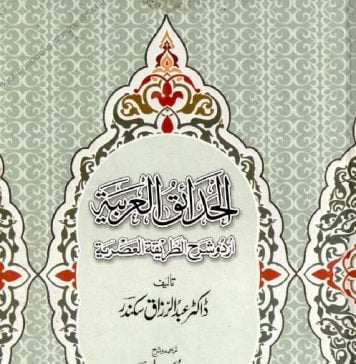 الحدائق العربية
اردو شرح الطريقة العصرية
تالیف
ڈاکٹر عبدالرزاق سکندر
ترجمہ و شرح